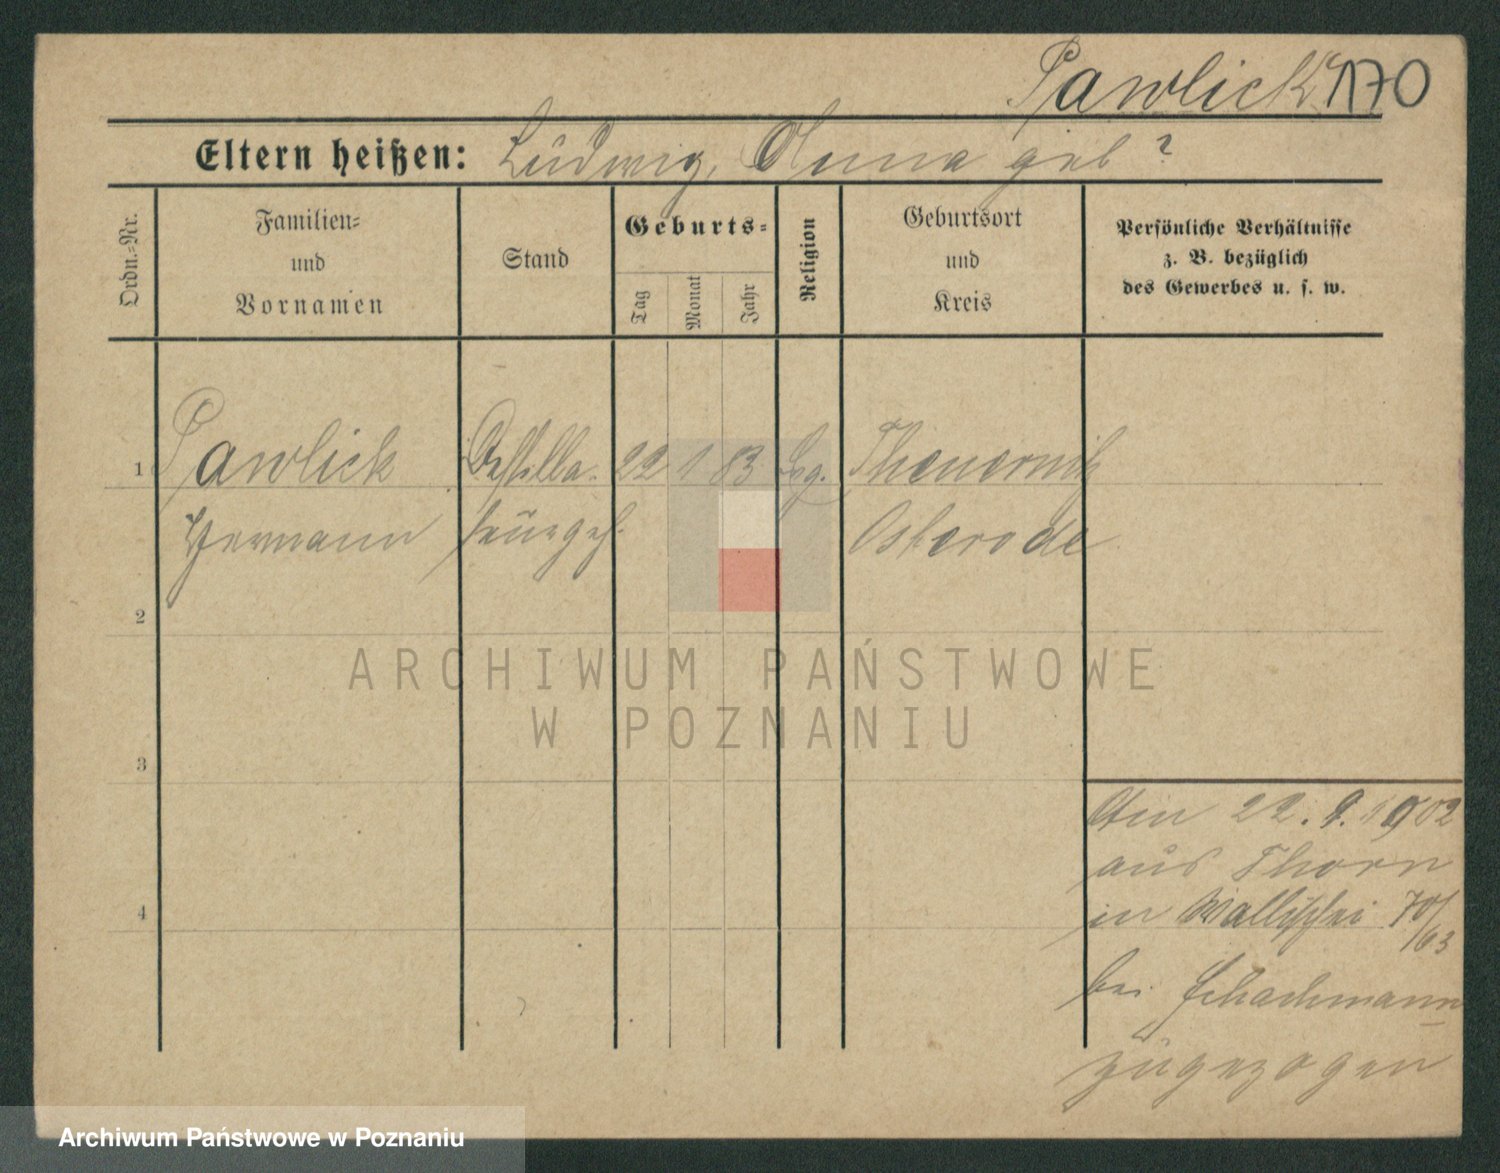 Pawlick 170
Eltern heißen: Ludwig, Anna geb ?
Ordn.-Nr.
Familien-
und
Vornamen
Stand
Geburts-
Tag
Monat
Jahr
Religion
Geburtsort
und
Kreis
Persönliche Verhältnisse
z. B. bezüglich
des Gewerbes u. s. w.
1 Pawlick Destilla- 22 1 83 Evg. Theuernitz
Hermann teurgeh. Osterode
2
ARCHIWUM PAŃSTWOWE
W POZNANIU
3
Am 22. 9. 1902
aus Thorn
4
in Wallischei 70/63
bei Schachmann
zugezogen
Archiwum Państwowe w Poznaniu